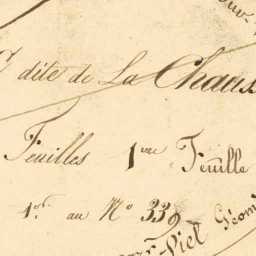 dite de La Chauss
Feuilles 1ere Feuille
1er au No 339
Piel Géom